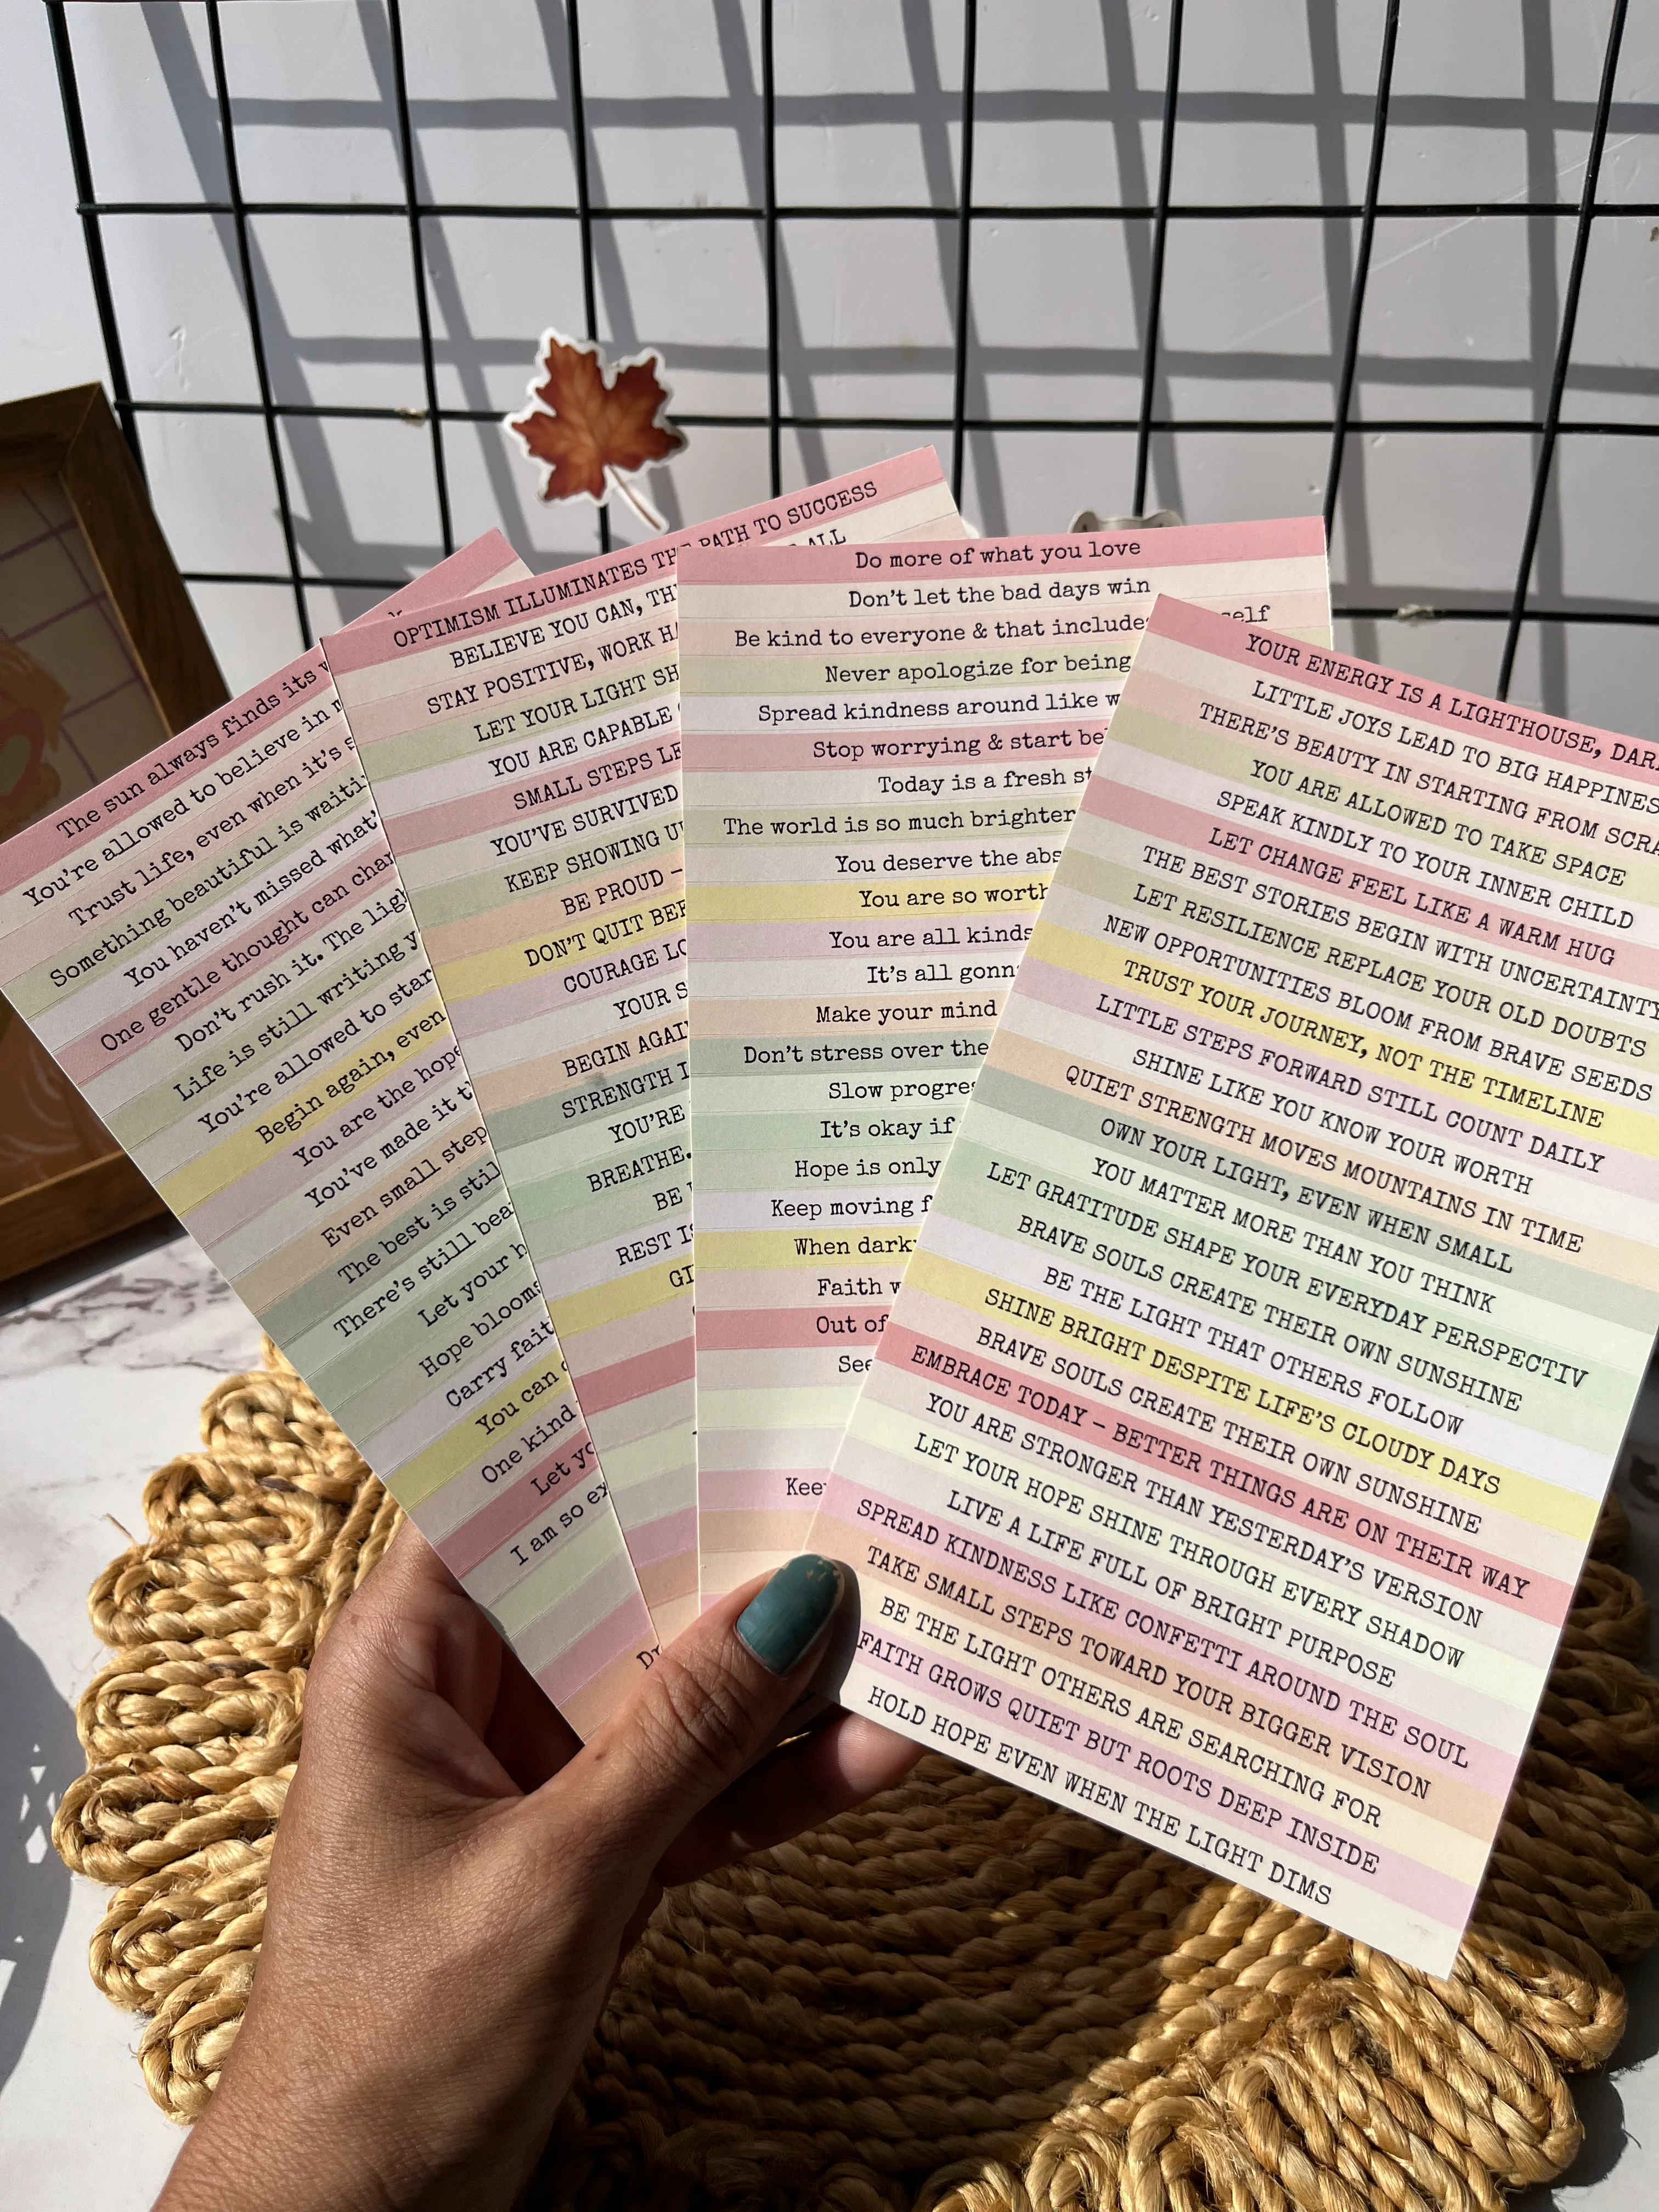 The sun always finds its
You're allowed to believe in
Trust life, even when it's
Something beautiful is
You haven't missed what'
One gentle thought can
Don't rush it. The
Life is still writing
You're allowed to
Begin again, even
You are the
You've made it
Even small
The best is
There's still
Let your
Hope
Carry
You can
One kind
Let
I am so
OPTIMISM ILLUMINATES THE PATH TO SUCCESS
BELIEVE YOU CAN,
STAY POSITIVE, WORK
LET YOUR LIGHT
YOU ARE CAPABLE
SMALL STEPS
YOU'VE SURVIVED
KEEP SHOWING
BE PROUD –
DON'T QUIT
COURAGE
YOUR
BEGIN
STRENGTH
YOU'RE
BREATHE.
BE
REST
Do more of what you love
Don't let the bad days win
Be kind to everyone & that
Never apologize for being
Spread kindness around like
Stop worrying & start
Today is a fresh
The world is so much brighter
You deserve the
You are so
You are all
It's all
Make your mind
Don't stress over the
Slow
It's okay if
Hope is only
Keep moving
When
Faith
Out of
YOUR ENERGY IS A LIGHTHOUSE,
LITTLE JOYS LEAD TO BIG
THERE'S BEAUTY IN STARTING FROM
YOU ARE ALLOWED TO TAKE SPACE
SPEAK KINDLY TO YOUR INNER CHILD
LET CHANGE FEEL LIKE A WARM HUG
THE BEST STORIES BEGIN WITH UNCERTAINTY
LET RESILIENCE REPLACE YOUR OLD DOUBTS
NEW OPPORTUNITIES BLOOM FROM BRAVE SEEDS
TRUST YOUR JOURNEY, NOT THE TIMELINE
LITTLE STEPS FORWARD STILL COUNT DAILY
SHINE LIKE YOU KNOW YOUR WORTH
QUIET STRENGTH MOVES MOUNTAINS IN TIME
OWN YOUR LIGHT, EVEN WHEN SMALL
YOU MATTER MORE THAN YOU THINK
LET GRATITUDE SHAPE YOUR EVERYDAY PERSPECTIV
BRAVE SOULS CREATE THEIR OWN SUNSHINE
BE THE LIGHT THAT OTHERS FOLLOW
SHINE BRIGHT DESPITE LIFE'S CLOUDY DAYS
BRAVE SOULS CREATE THEIR OWN SUNSHINE
EMBRACE TODAY – BETTER THINGS ARE ON THEIR WAY
YOU ARE STRONGER THAN YESTERDAY'S VERSION
LET YOUR HOPE SHINE THROUGH EVERY SHADOW
LIVE A LIFE FULL OF BRIGHT PURPOSE
SPREAD KINDNESS LIKE CONFETTI AROUND THE SOUL
TAKE SMALL STEPS TOWARD YOUR BIGGER VISION
BE THE LIGHT OTHERS ARE SEARCHING FOR
FAITH GROWS QUIET BUT ROOTS DEEP INSIDE
HOLD HOPE EVEN WHEN THE LIGHT DIMS